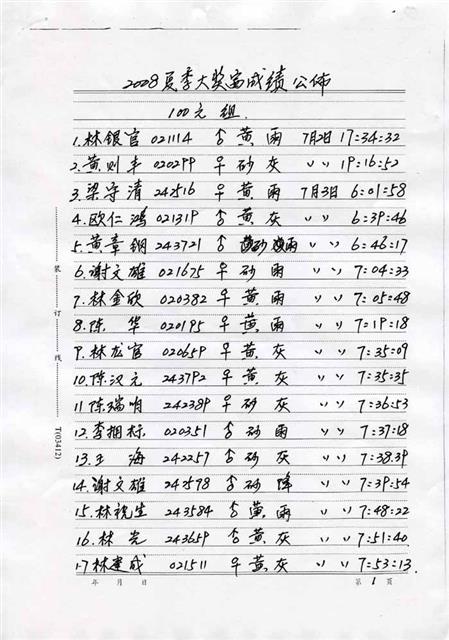 2008夏季大奖赛成绩公佈
100元组.
1.林银官 021114 ♂ 黄 雨 7月2日 17:34:32
2.黄则丰 020299 ♀ 砂 灰 〃 19:16:52
3.梁守清 242516 ♀ 黄 雨 7月3日 6:01:58
4.欧仁鸿 021319 ♂ 黄 灰 〃 6:39:46
5.黄章钢 243721 ♂ 砂 雨 〃 6:46:17
6.谢文雄 021675 ♀ 砂 雨 〃 7:04:33
7.林金欣 020382 ♀ 黄 雨 〃 7:05:48
8.陈 华 020195 ♀ 黄 雨 〃 7:19:18
9.林龙官 020659 ♀ 黄 灰 〃 7:35:09
10.陈汉元 243792 ♀ 黄 灰 〃 7:35:35
11陈瑞明 242389 ♀ 砂 灰 〃 7:36:53
12.李拥标 020351 ♂ 砂 雨 〃 7:37:18
13.王 海 242257 ♂ 砂 灰 〃 7:38:39
14.谢文雄 242598 ♂ 砂 降 〃 7:39:54
15.林祝生 243584 ♂ 黄 雨 〃 7:48:22
16.林 光 243659 ♂ 黄 灰 〃 7:51:40.
17林建成 021511 ♀ 黄 灰 〃 7:53:13.
年 月 日 第 1 页
装 订 线
T(03412)